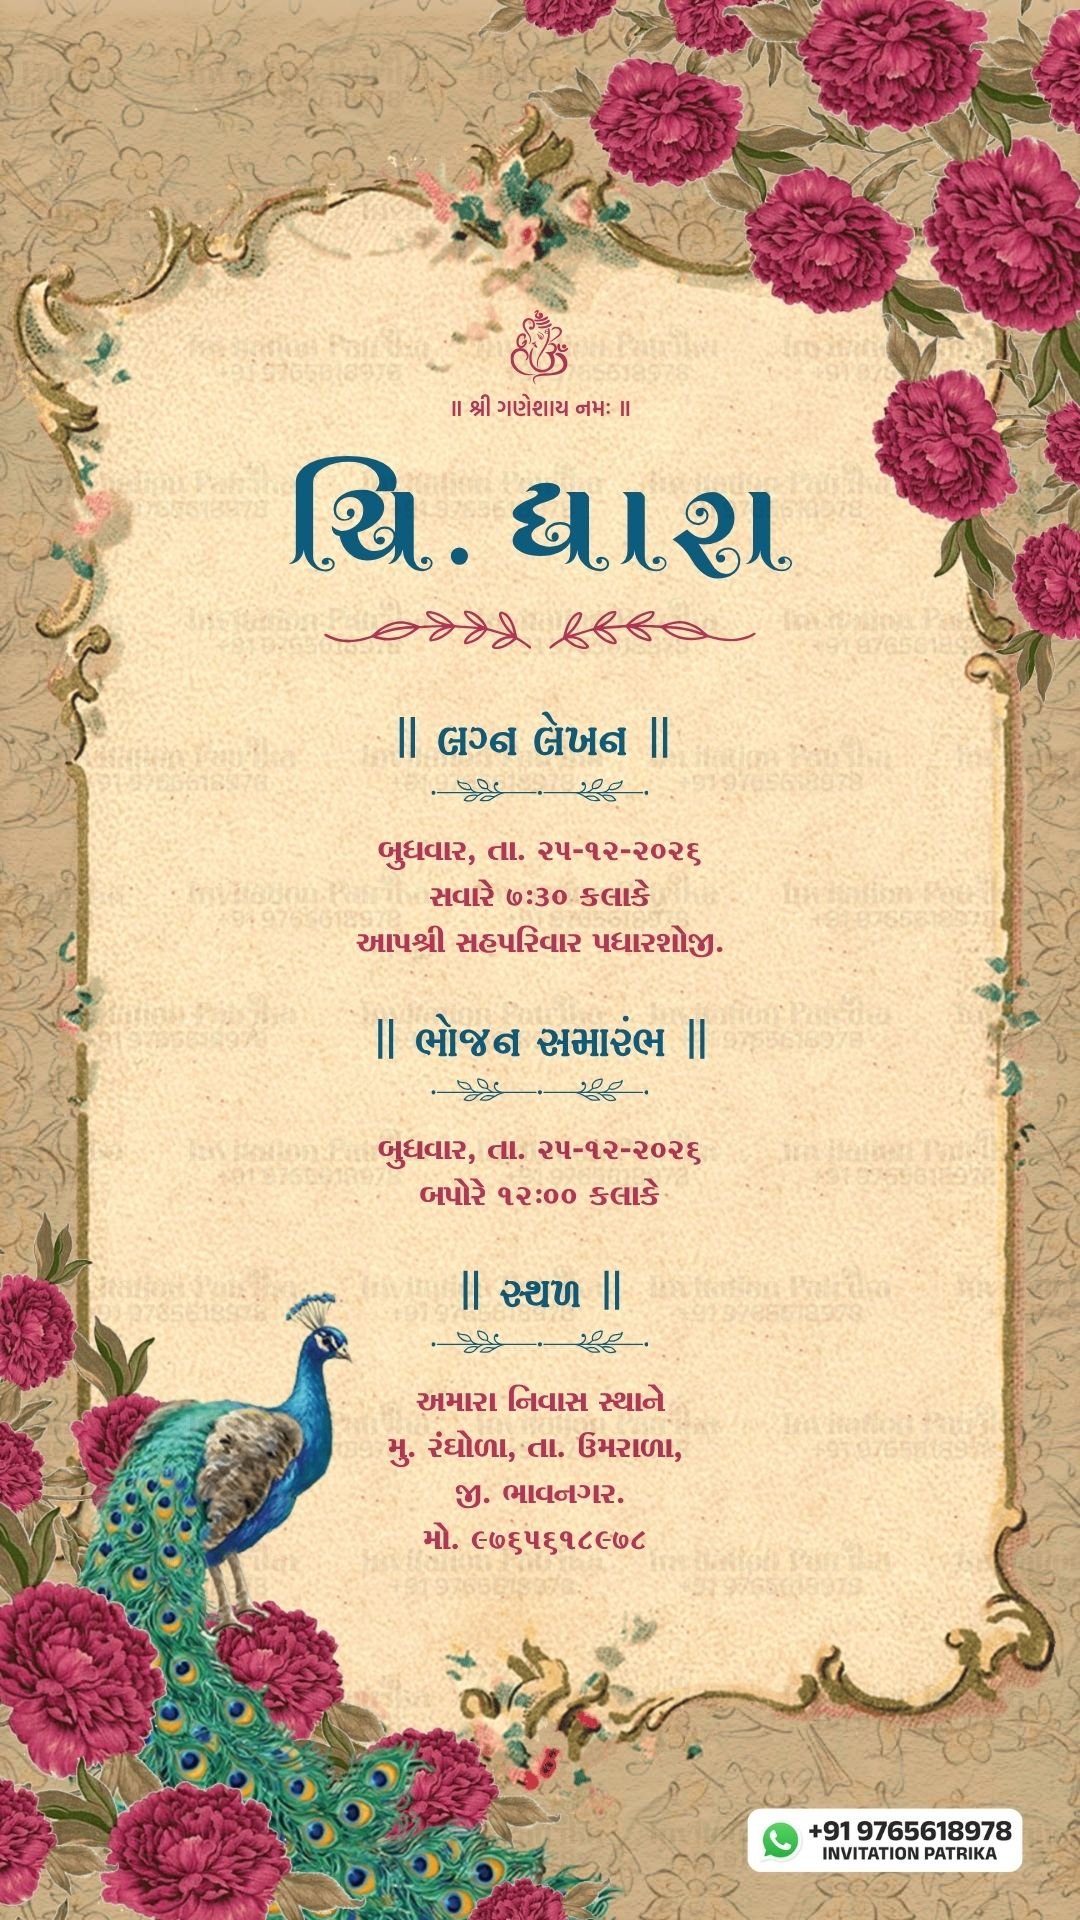 ॥ શ્રી ગણેશાય નમઃ ॥
ચિ. ધારા
|| લગ્ન લેખન ||
બુધવાર, તા. ૨૫-૧૨-૨૦૨૬
સવારે ૭:૩૦ કલાકે
આપશ્રી સહપરિવાર પધારશોજી.
|| ભોજન સમારંભ ||
બુધવાર, તા. ૨૫-૧૨-૨૦૨૬
બપોરે ૧૨:૦૦ કલાકે
|| સ્થળ ||
અમારા નિવાસ સ્થાને
મુ. રંઘોળા, તા. ઉમરાળા,
જી. ભાવનગર.
મો. ૯૭૬૫૬૧૮૯૭૮
+91 9765618978
INVITATION PATRIKA